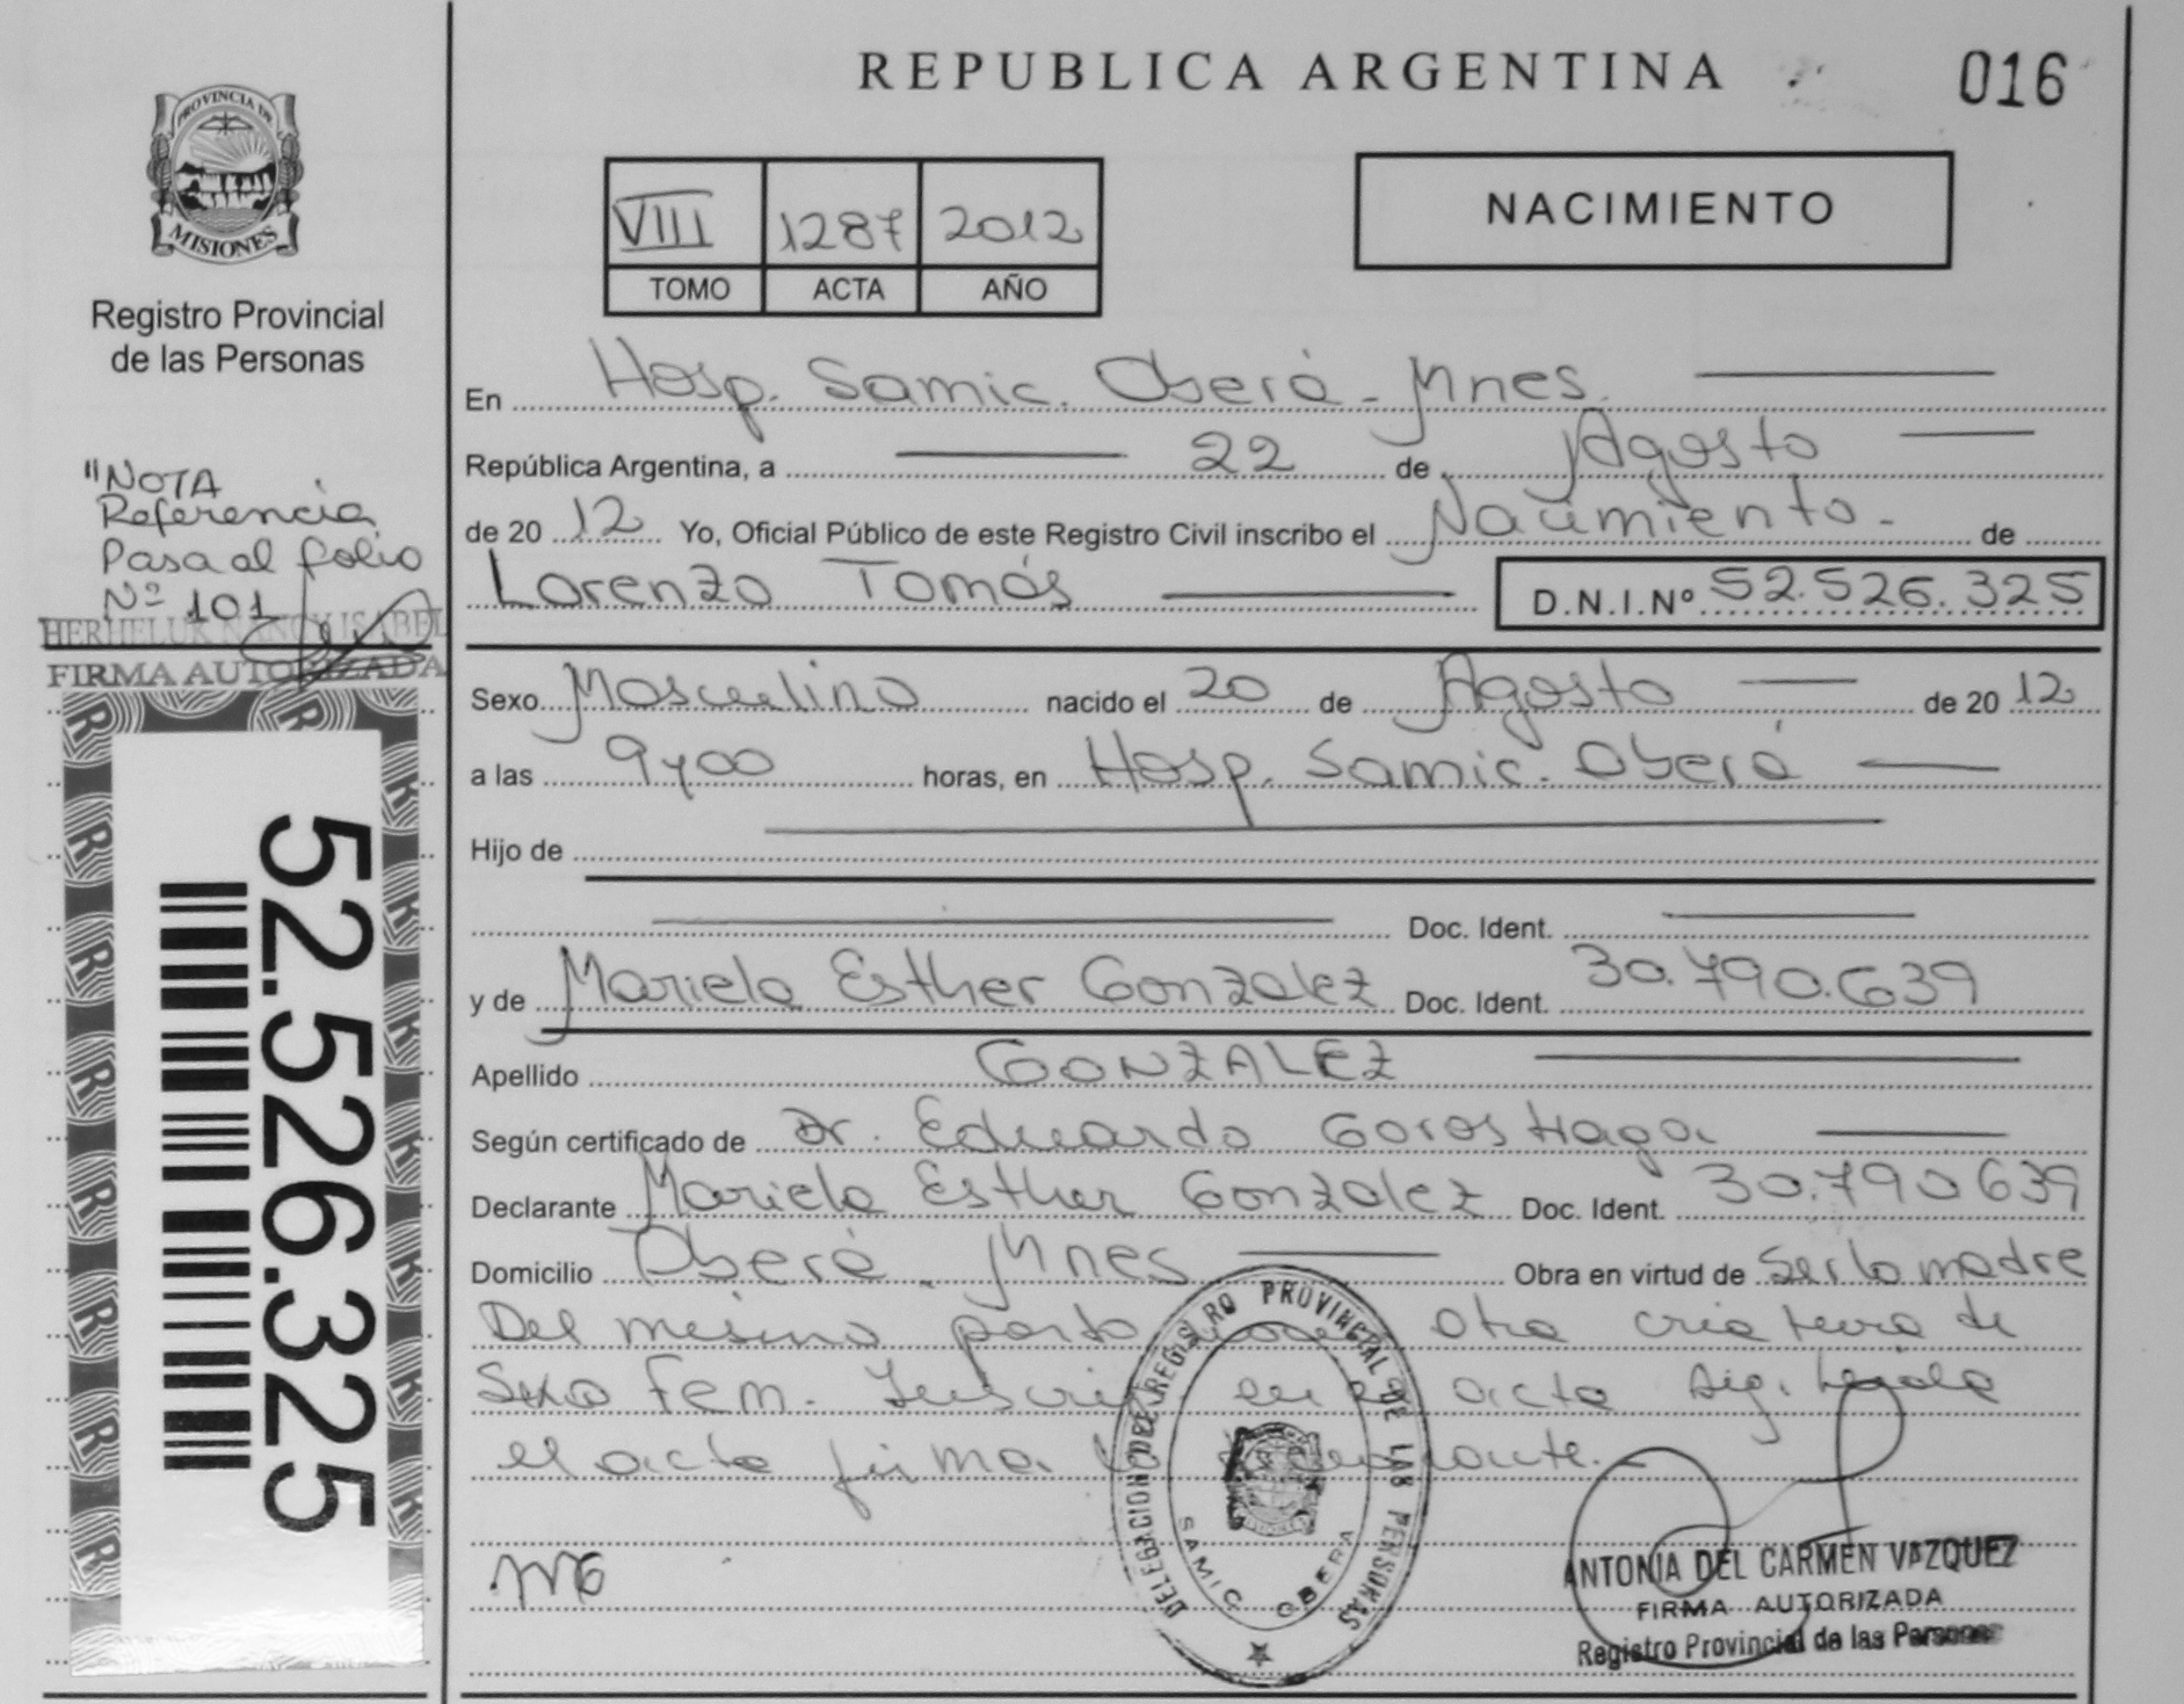 REPUBLICA ARGENTINA
016
PROVINCIA DE
MISIONES
Registro Provincial
de las Personas
VIII 1287 2012
TOMO ACTA AÑO
NACIMIENTO
En Hosp. Samic. Oberá - Mnes.
República Argentina, a 22 de Agosto
de 20 12 Yo, Oficial Público de este Registro Civil inscribo el Nacimiento - de
Lorenzo Tomás D.N.I.Nº 52.526.325
"NOTA
Referencia
Pasa al folio
Nº 101
HERHELUK NANCY ISABEL
FIRMA AUTORIZADA
52.526.325
Sexo Masculino nacido el 20 de Agosto de 20 12
a las 9y00 horas, en Hosp. Samic. Oberá
Hijo de
Doc. Ident.
y de Mariela Esther Gonzalez Doc. Ident. 30.790.639
Apellido GONZALEZ
Según certificado de Dr. Eduardo Gorostiaga
Declarante Mariela Esther Gonzalez Doc. Ident. 30.790639
Domicilio Oberá. Mnes Obra en virtud de ser la madre
Del mismo parto otra criatura de
Sexo Fem. en el acta sig. Leída
el acta firma la declarante.-
MG
DELEGACION DEL REGISTRO PROVINCIAL DE LAS PERSONAS
SAMIC OBERA
ANTONIA DEL CARMEN VAZQUEZ
FIRMA AUTORIZADA
Registro Provincial de las Personas